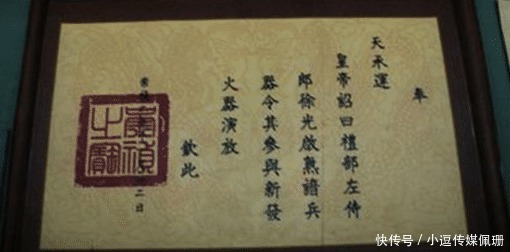 奉
天承運
皇帝詔曰禮部左侍
郎徐光啟熟諳兵
器令其參與新發
火器演放
欽此
二日
崇禎
之寶
快传号／小逗传媒佩珊